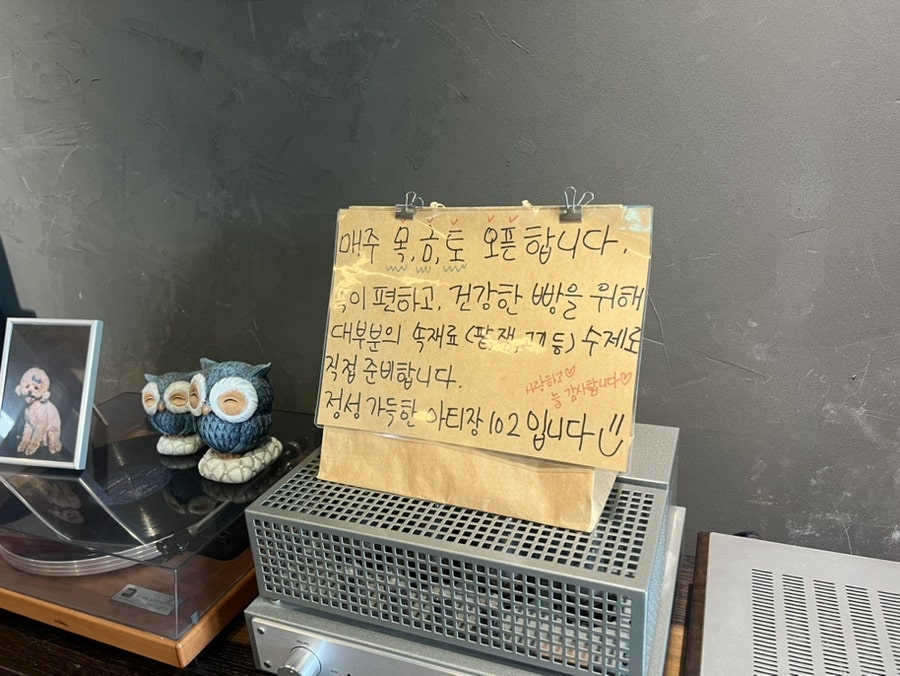 매주 목,금,토 오픈합니다.
속이 편하고, 건강한 빵을 위해
대부분의 속재료(팥,잼,크림 등) 수제로
직접 준비합니다.
사랑하고♡
늘 감사합니다♡
정성 가득한 아티장102입니다